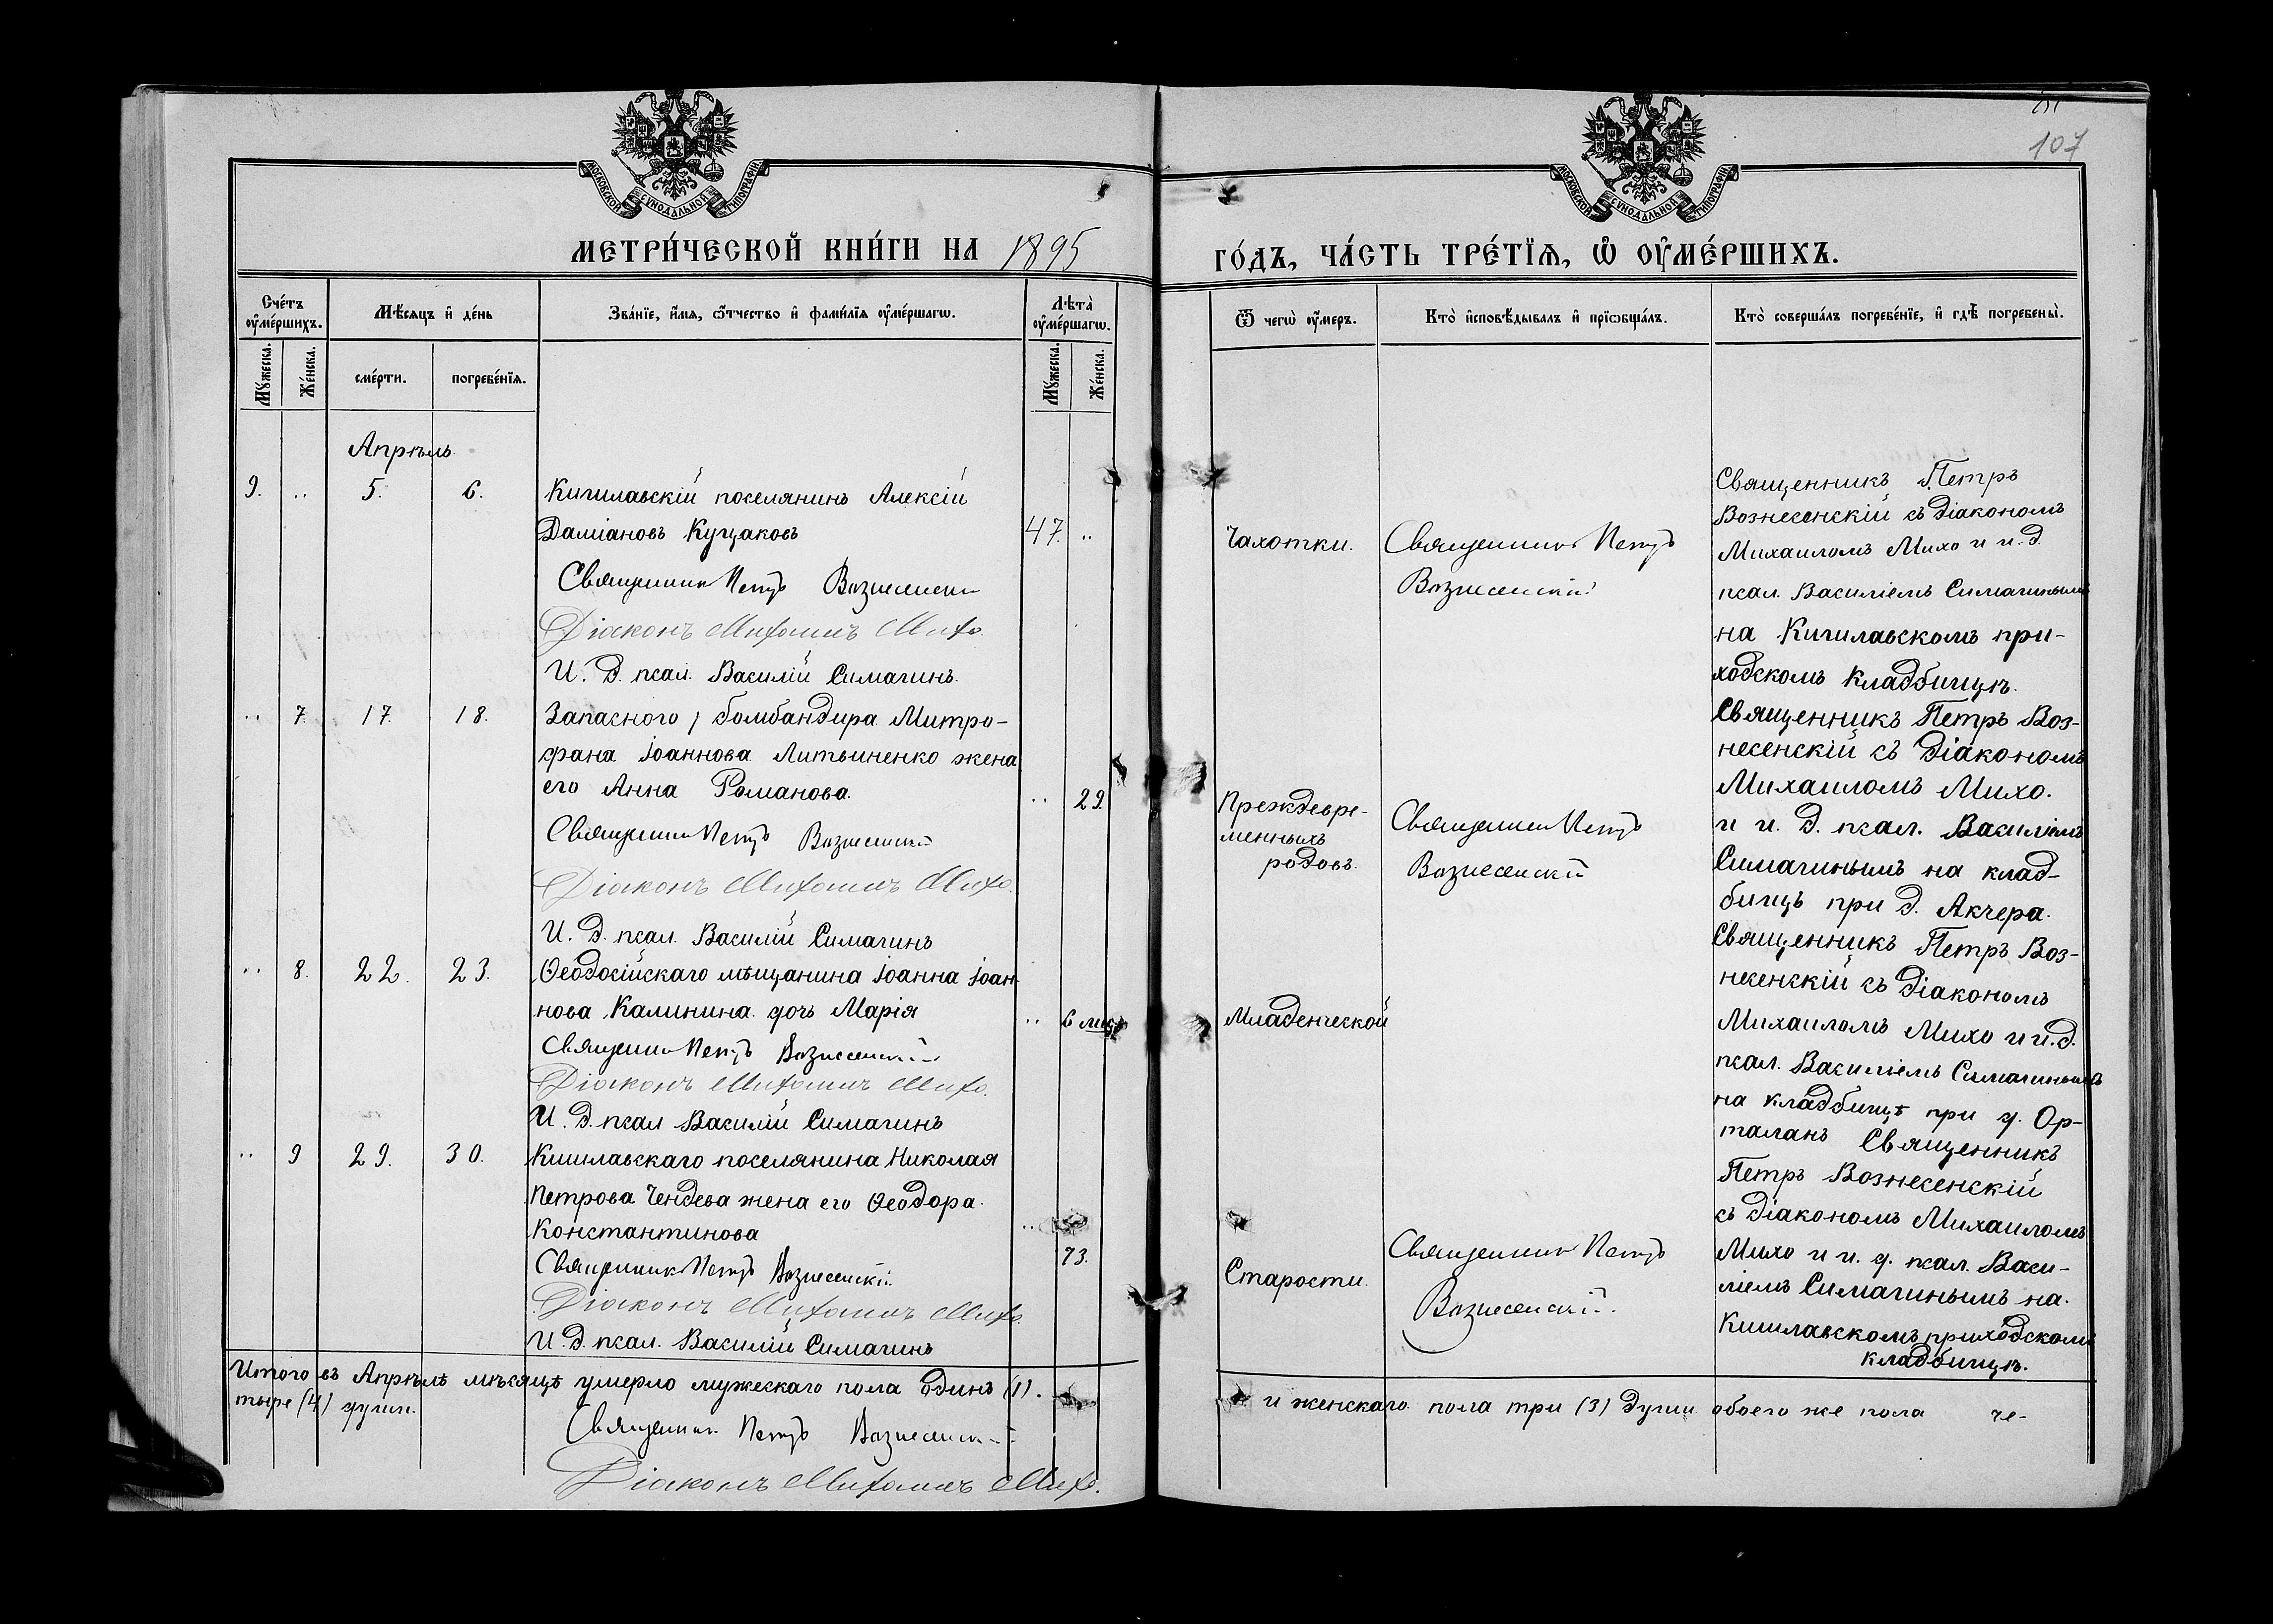 107
МОСКОВСКОЙ СѴНОДАЛЬНОЙ ТИПОГРАФІИ
МОСКОВСКОЙ СѴНОДАЛЬНОЙ ТИПОГРАФІИ
МЕТРИ́ЧЕСКОЙ КНИ́ГИ НА 1895
ГО́ДЪ, ЧА́СТЬ ТРЕ́ТЇѦ, Ѡ҆ ОУ҆МЕ́РШИХЪ.
Сче́тъ оу҆ме́ршихъ.
Мѣ́сѧцъ и҆ де́нь
Зва́нїе, и҆́мѧ, ѻ҆́тчество и҆ фами́лїѧ оу҆ме́ршагѡ.
Лѣ̀та оу҆ме́ршагѡ.
Ѿ чегѡ̀ оу҆́меръ.
Кто̀ и҆сповѣ́дывалъ и҆ прїѡбща́лъ.
Кто̀ соверша́лъ погребе́нїе, и҆ гдѣ̀ погребены̀.
Мꙋ́жеска.
Же́нска.
сме́рти.
погребе́нїѧ.
Мꙋ́жеска.
Же́нска.
Апрѣль.
9. „ 5. 6. Кишлавскій поселянинъ Алексій
Даміановъ Куцаковъ 47. „
Священникъ Петръ Вознесенскій
Діаконъ Михаилъ Михо.
И. Д. псал. Василій Симагинъ.
Чахотки.
Священникъ Петръ
Вознесенскій
Священникъ Петръ
Вознесенскій съ Діакономъ
Михаиломъ Михо и и. д.
псал. Василіемъ Симагинымъ
на Кишлавскомъ при-
ходскомъ кладбищѣ.
„ 7. 17. 18. Запаснаго бомбандира Митро-
фана Іоаннова Литвиненко жена
его Анна Романова. „ 29.
Священникъ Петръ Вознесенскій
Діаконъ Михаилъ Михо.
И. Д. псал. Василій Симагинъ
Преждевре-
менныхъ
родовъ.
Священникъ Петръ
Вознесенскій
Священникъ Петръ Воз-
несенскій съ Діакономъ
Михаиломъ Михо.
и и. д. псал. Василіемъ
Симагинымъ на клад-
бищѣ при д. Акчера.
„ 8. 22. 23. Ѳеодосійскаго мѣщанина Іоанна Іоан-
нова Калинина дочь Марія „ 6 мѣс.
Священникъ Петръ Вознесенскій
Діаконъ Михаилъ Михо.
И. Д. псал Василій Симагинъ
Младенческой
Священникъ Петръ Воз-
несенскій съ Діакономъ
Михаиломъ Михо и и. д.
псал. Василіемъ Симагинымъ
на кладбищѣ при д. Ор-
таланъ
„ 9 29. 30. Кишлавскаго поселянина Николая
Петрова Чендева жена его Ѳеодора
Константинова „
73.
Священникъ Петръ Вознесенскій
Діаконъ Михаилъ Михо.
И. Д. псал. Василій Симагинъ
Старости.
Священникъ Петръ
Вознесенскій
Священникъ
Петръ Вознесенскій
съ Діакономъ Михаиломъ
Михо и и. д. псал. Васи-
ліемъ Симагинымъ на
Кишлавскомъ приходскомъ
кладбищѣ.
Итого въ Апрѣлѣ мѣсяцѣ умерло мужескаго пола одинъ (1).
и женскаго пола три (3) души обоего же пола че-
тыре (4) души.
Священникъ Петръ Вознесенскій
Діаконъ Михаилъ Михо.